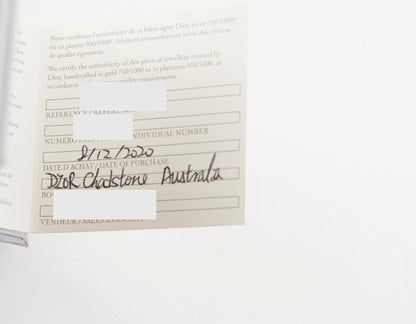 Nous certifions l'authenticité de ce bijou signé Dior en or 750/1000°
ou en platine 950/1000°, fabriqué artisanalement selon des critères
de qualité rigoureux.
We certify the authenticity of this piece of jewellery created by
Dior, handcrafted in gold 750/1000 or in platinum 950/1000, in
accordance quality requirements.
RÉFÉRENCE / REFERENCE
NUMÉRO INDIVIDUAL NUMBER
8/12/2020
DATE D'ACHAT / DATE OF PURCHASE
DIOR Chadstone Australia
BOU
VENDEUR / SALES ASSOCIATE